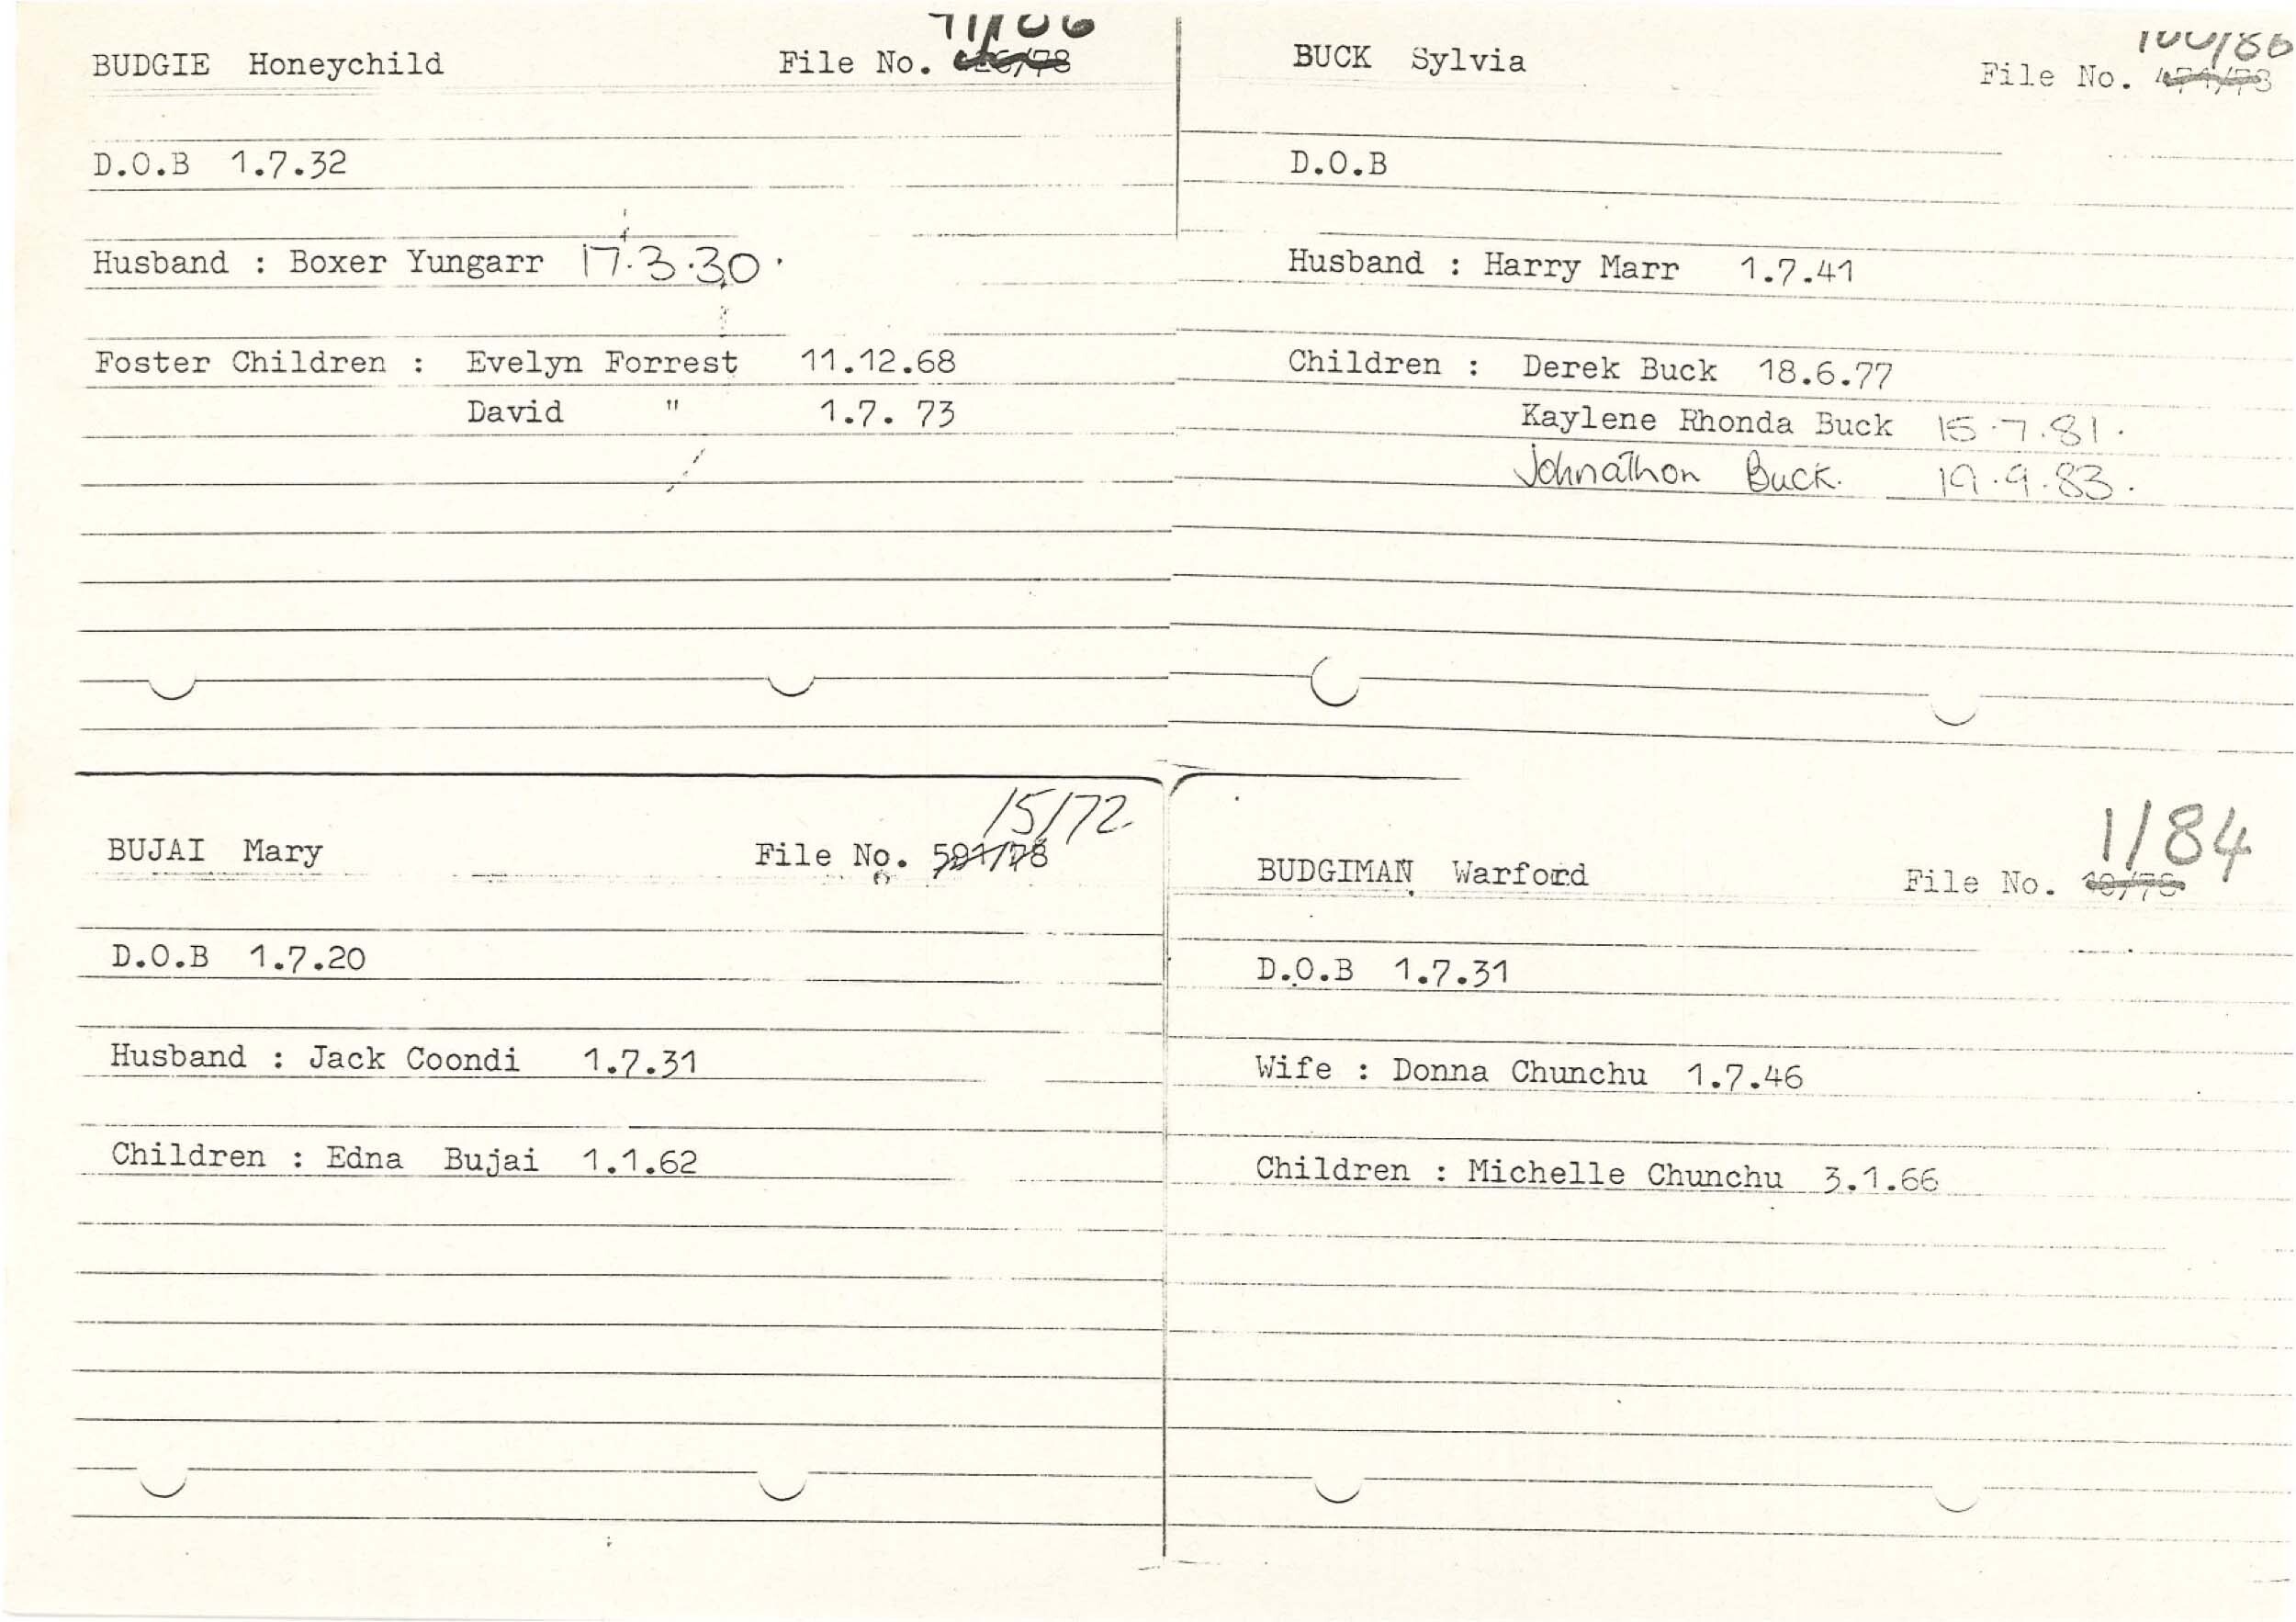 BUDGIE Honeychild File No.
D.O.B 1.7.32
Husband : Boxer Yungarr 17.3.30.
Foster Children : Evelyn Forrest 11.12.68
David " 1.7. 73
BUCK Sylvia File No. 100/86
D.O.B
Husband : Harry Marr 1.7.41
Children : Derek Buck 18.6.77
Kaylene Rhonda Buck 15.7.81.
Johnathon Buck. 19.9.83.
15/72
BUJAI Mary File No. 591/78
D.O.B 1.7.20
Husband : Jack Coondi 1.7.31
Children : Edna Bujai 1.1.62
1/84
BUDGIMAN Warford File No.
D.O.B 1.7.31
Wife : Donna Chunchu 1.7.46
Children : Michelle Chunchu 3.1.66